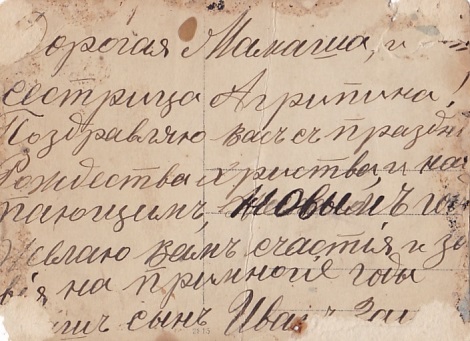 Дорогая Мамаша, и
сестрица Агрипина!
Поздравляю васъ съ праздн
Рождества Христва, и нас
пающимъ новымъ го
Желаю вамъ счастія и здо
вія на примногіе годы
сынъ Иванъ